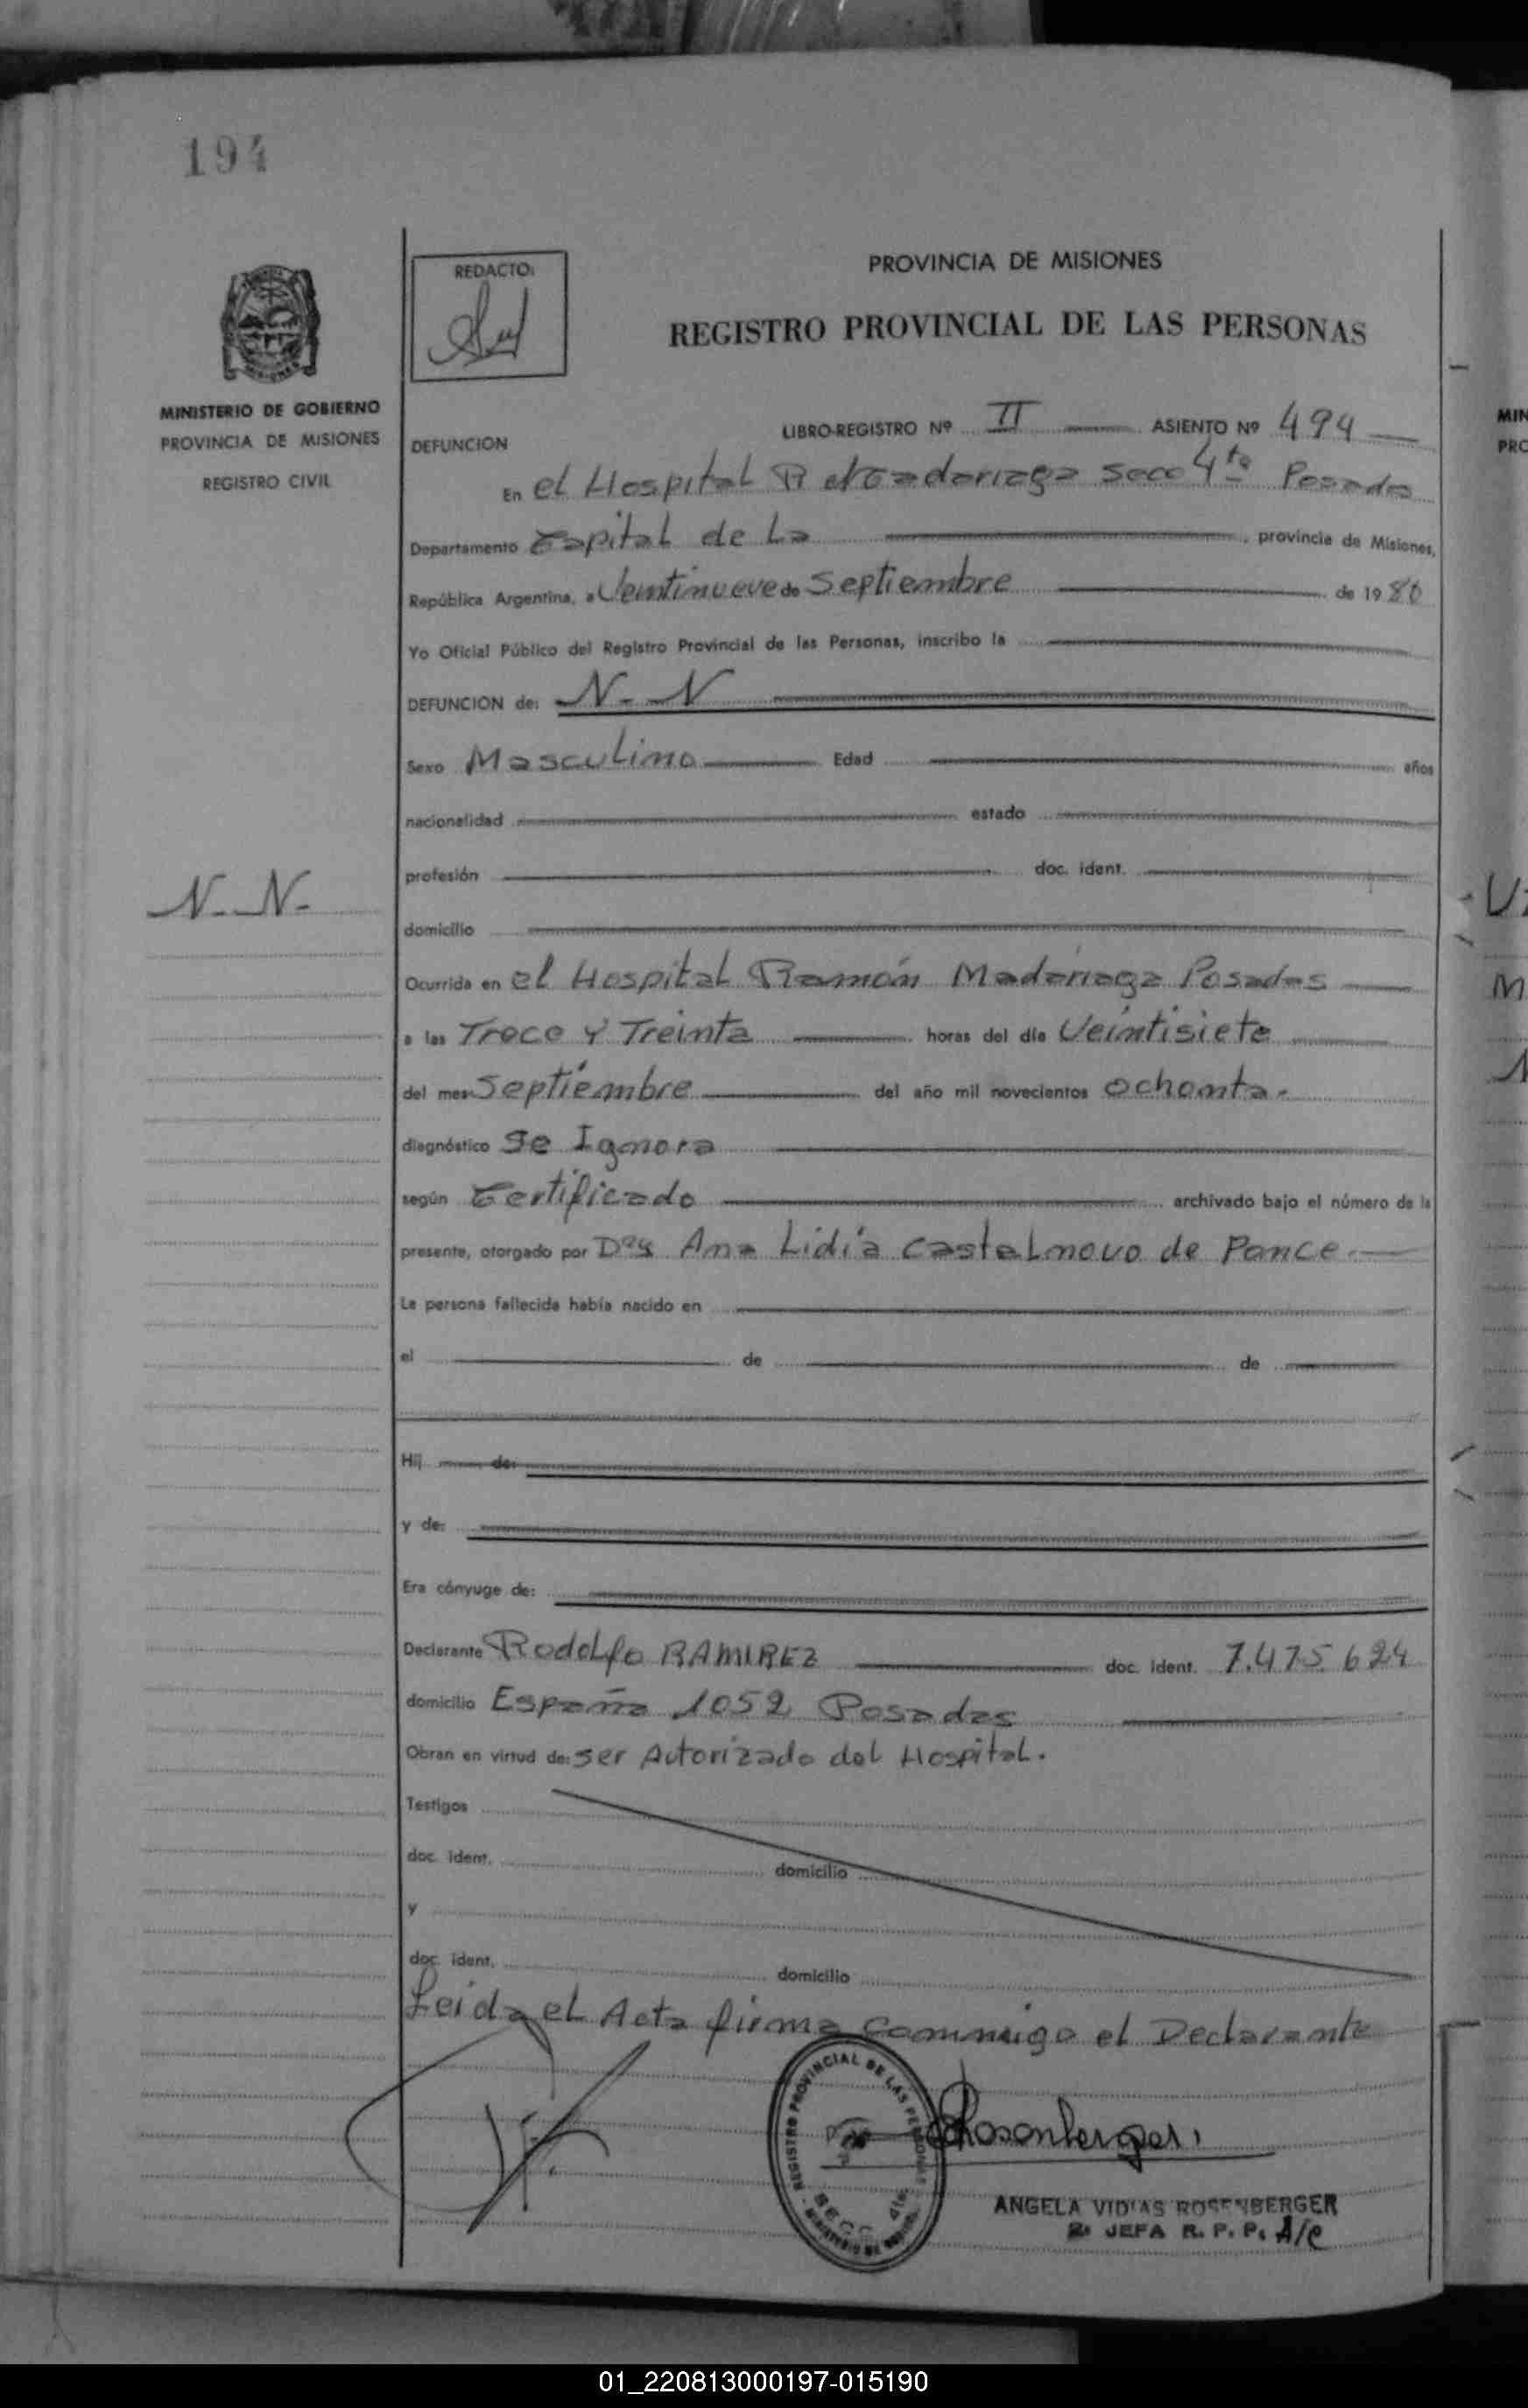 194
REDACTO:
PROVINCIA DE MISIONES
REGISTRO PROVINCIAL DE LAS PERSONAS
MINISTERIO DE GOBIERNO
PROVINCIA DE MISIONES
REGISTRO CIVIL
LIBRO-REGISTRO Nº II ASIENTO Nº 494
DEFUNCION
En el Hospital R Madariaga Secc 4ta Posadas
Departamento Capital de La , provincia de Misiones,
República Argentina, a Veintinueve de Septiembre de 1980
Yo Oficial Público del Registro Provincial de las Personas, inscribo la
DEFUNCION de: N-N
Sexo Masculino Edad años
nacionalidad estado
profesión doc. ident.
N-N-
domicilio
Ocurrida en el Hospital Ramón Madariaga Posadas
a las Trece y Treinta horas del día Veintisiete
del mes Septiembre del año mil novecientos ochenta.
diagnóstico Se Ignora
según Certificado archivado bajo el número de la
presente, otorgado por Dra Ana Lidia Castelnovo de Ponce.
La persona fallecida había nacido en
el de de
Hij de:
y de:
Era cónyuge de:
Declarante Rodolfo RAMIREZ doc. ident. 7.475.624
domicilio España 1052 Posadas
Obran en virtud de: Ser Autorizado del Hospital.
Testigos
doc. ident. domicilio
y
doc. ident. domicilio
Leida el Acta firma conmigo el Declarante
REGISTRO PROVINCIAL DE LAS PERSONAS
SECC. 4ta.
Rosenberger
ANGELA VIDIAS ROSENBERGER
2ª JEFA R. P. P. A/C
MIN
PRO
01_220813000197-015190